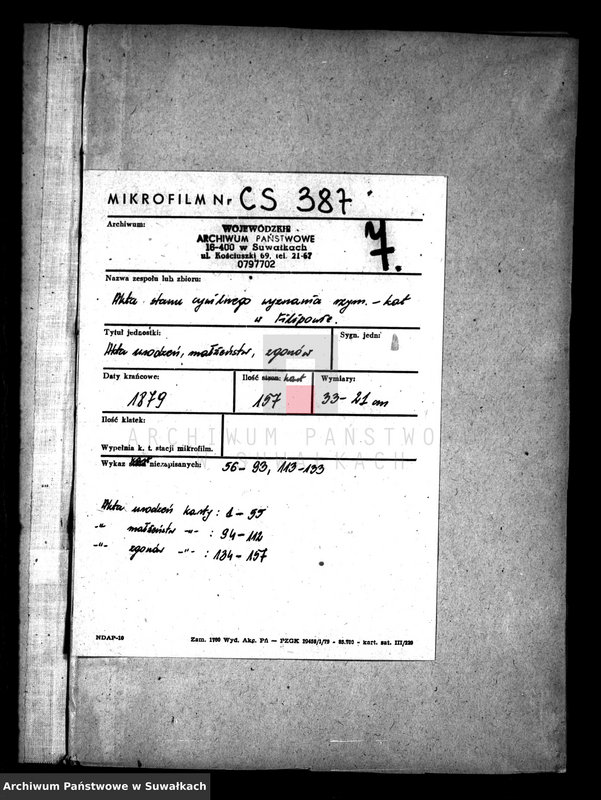 MIKROFILM Nr CS 387
Archiwum:
WOJEWÓDZKIE
ARCHIWUM PAŃSTWOWE
16-400 w Suwałkach
ul. Kościuszki 69, tel. 21-67
0797702
7.
Nazwa zespołu lub zbioru:
Akta stanu cywilnego wyznania rzym. - kat
w Filipowie.
Tytuł jednostki:
Sygn. jedn:
1
Akta urodzeń, małżeństw, zgonów
Daty krańcowe:
Ilość stron: kart
Wymiary:
1879
157
33-21 cm
Ilość klatek:
Wypełnia k. t. stacji mikrofilm.
Wykaz kart niezapisanych: 56-93, 113-133
Akta urodzeń karty: 1-55
-"- małżeństw -"- : 94-112
-"- zgonów -"- : 134-157
NDAP-10
Zam. 1700 Wyd. Akc. Pń — PZGK
kart. sat. III/220
ARCHIWUM PAŃSTWO
W SUWAŁKACH
Archiwum Państwowe w Suwałkach